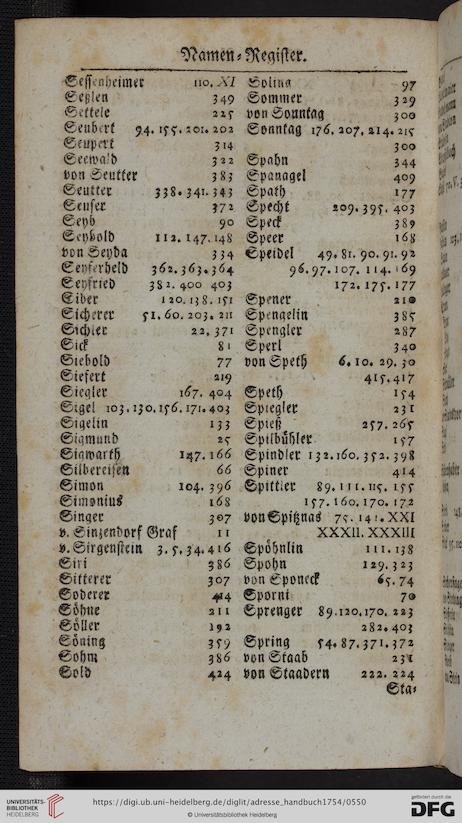 Namen-Register.
Sessenheimer 110. XI
Seßlen 349
Settele 225
Seubert 94. 155. 201. 202
Seupert 314
Seewald 322
von Seutter 383
Seutter 338. 341. 343
Seuser 372
Seyb 90
Seybold 112. 147. 148
von Seyda 334
Seyferheld 362. 363. 364
Seyfried 382. 400 403
Siber 120. 138. 151
Sicherer 51. 60. 203. 211
Sichler 22. 371
Sick 81
Siebold 77
Siefert 219
Siegler 167. 404
Sigel 103. 130. 156. 171. 403
Sigelin 133
Sigmund 25
Sigwarth 147. 166
Silbereisen 66
Simon 104. 396
Simonius 168
Singer 307
v. Sinzendorf Graf 11
v. Sirgenstein 3. 5. 34. 416
Siri 386
Sitterer 307
Soderer 414
Söhne 211
Söller 192
Söning 359
Sohm 386
Sold 424
Solina 97
Sommer 329
von Sonntag 300
Sonntag 176. 207. 214. 215
300
Spahn 344
Spanagel 409
Späth 177
Specht 209. 395. 403
Speck 389
Speer 168
Speidel 49. 81. 90. 91. 92
96. 97. 107. 114. 169
172. 175. 177
Spener 210
Spengelin 385
Spengler 287
Sperl 340
von Speth 6. 10. 29. 30
415. 417
Speth 154
Spiegler 231
Spieß 257. 265
Spilbühler 157
Spindler 132. 160. 352. 398
Spiner 414
Spittler 89. 111. 115. 155
157. 160. 170. 172
von Spitznas 75. 141. XXI
XXXII. XXXIII
Spöhnlin 111. 138
Spohn 129. 323
von Sponeck 65. 74
Sporni 70
Sprenger 89. 120. 170. 223
282. 403
Spring 54. 87. 371. 372
von Staab 231
von Staadern 222. 224
Sta-
UNIVERSITÄTS-
BIBLIOTHEK
HEIDELBERG
https://digi.ub.uni-heidelberg.de/diglit/adresse_handbuch1754/0550
© Universitätsbibliothek Heidelberg
gefördert durch die
DFG